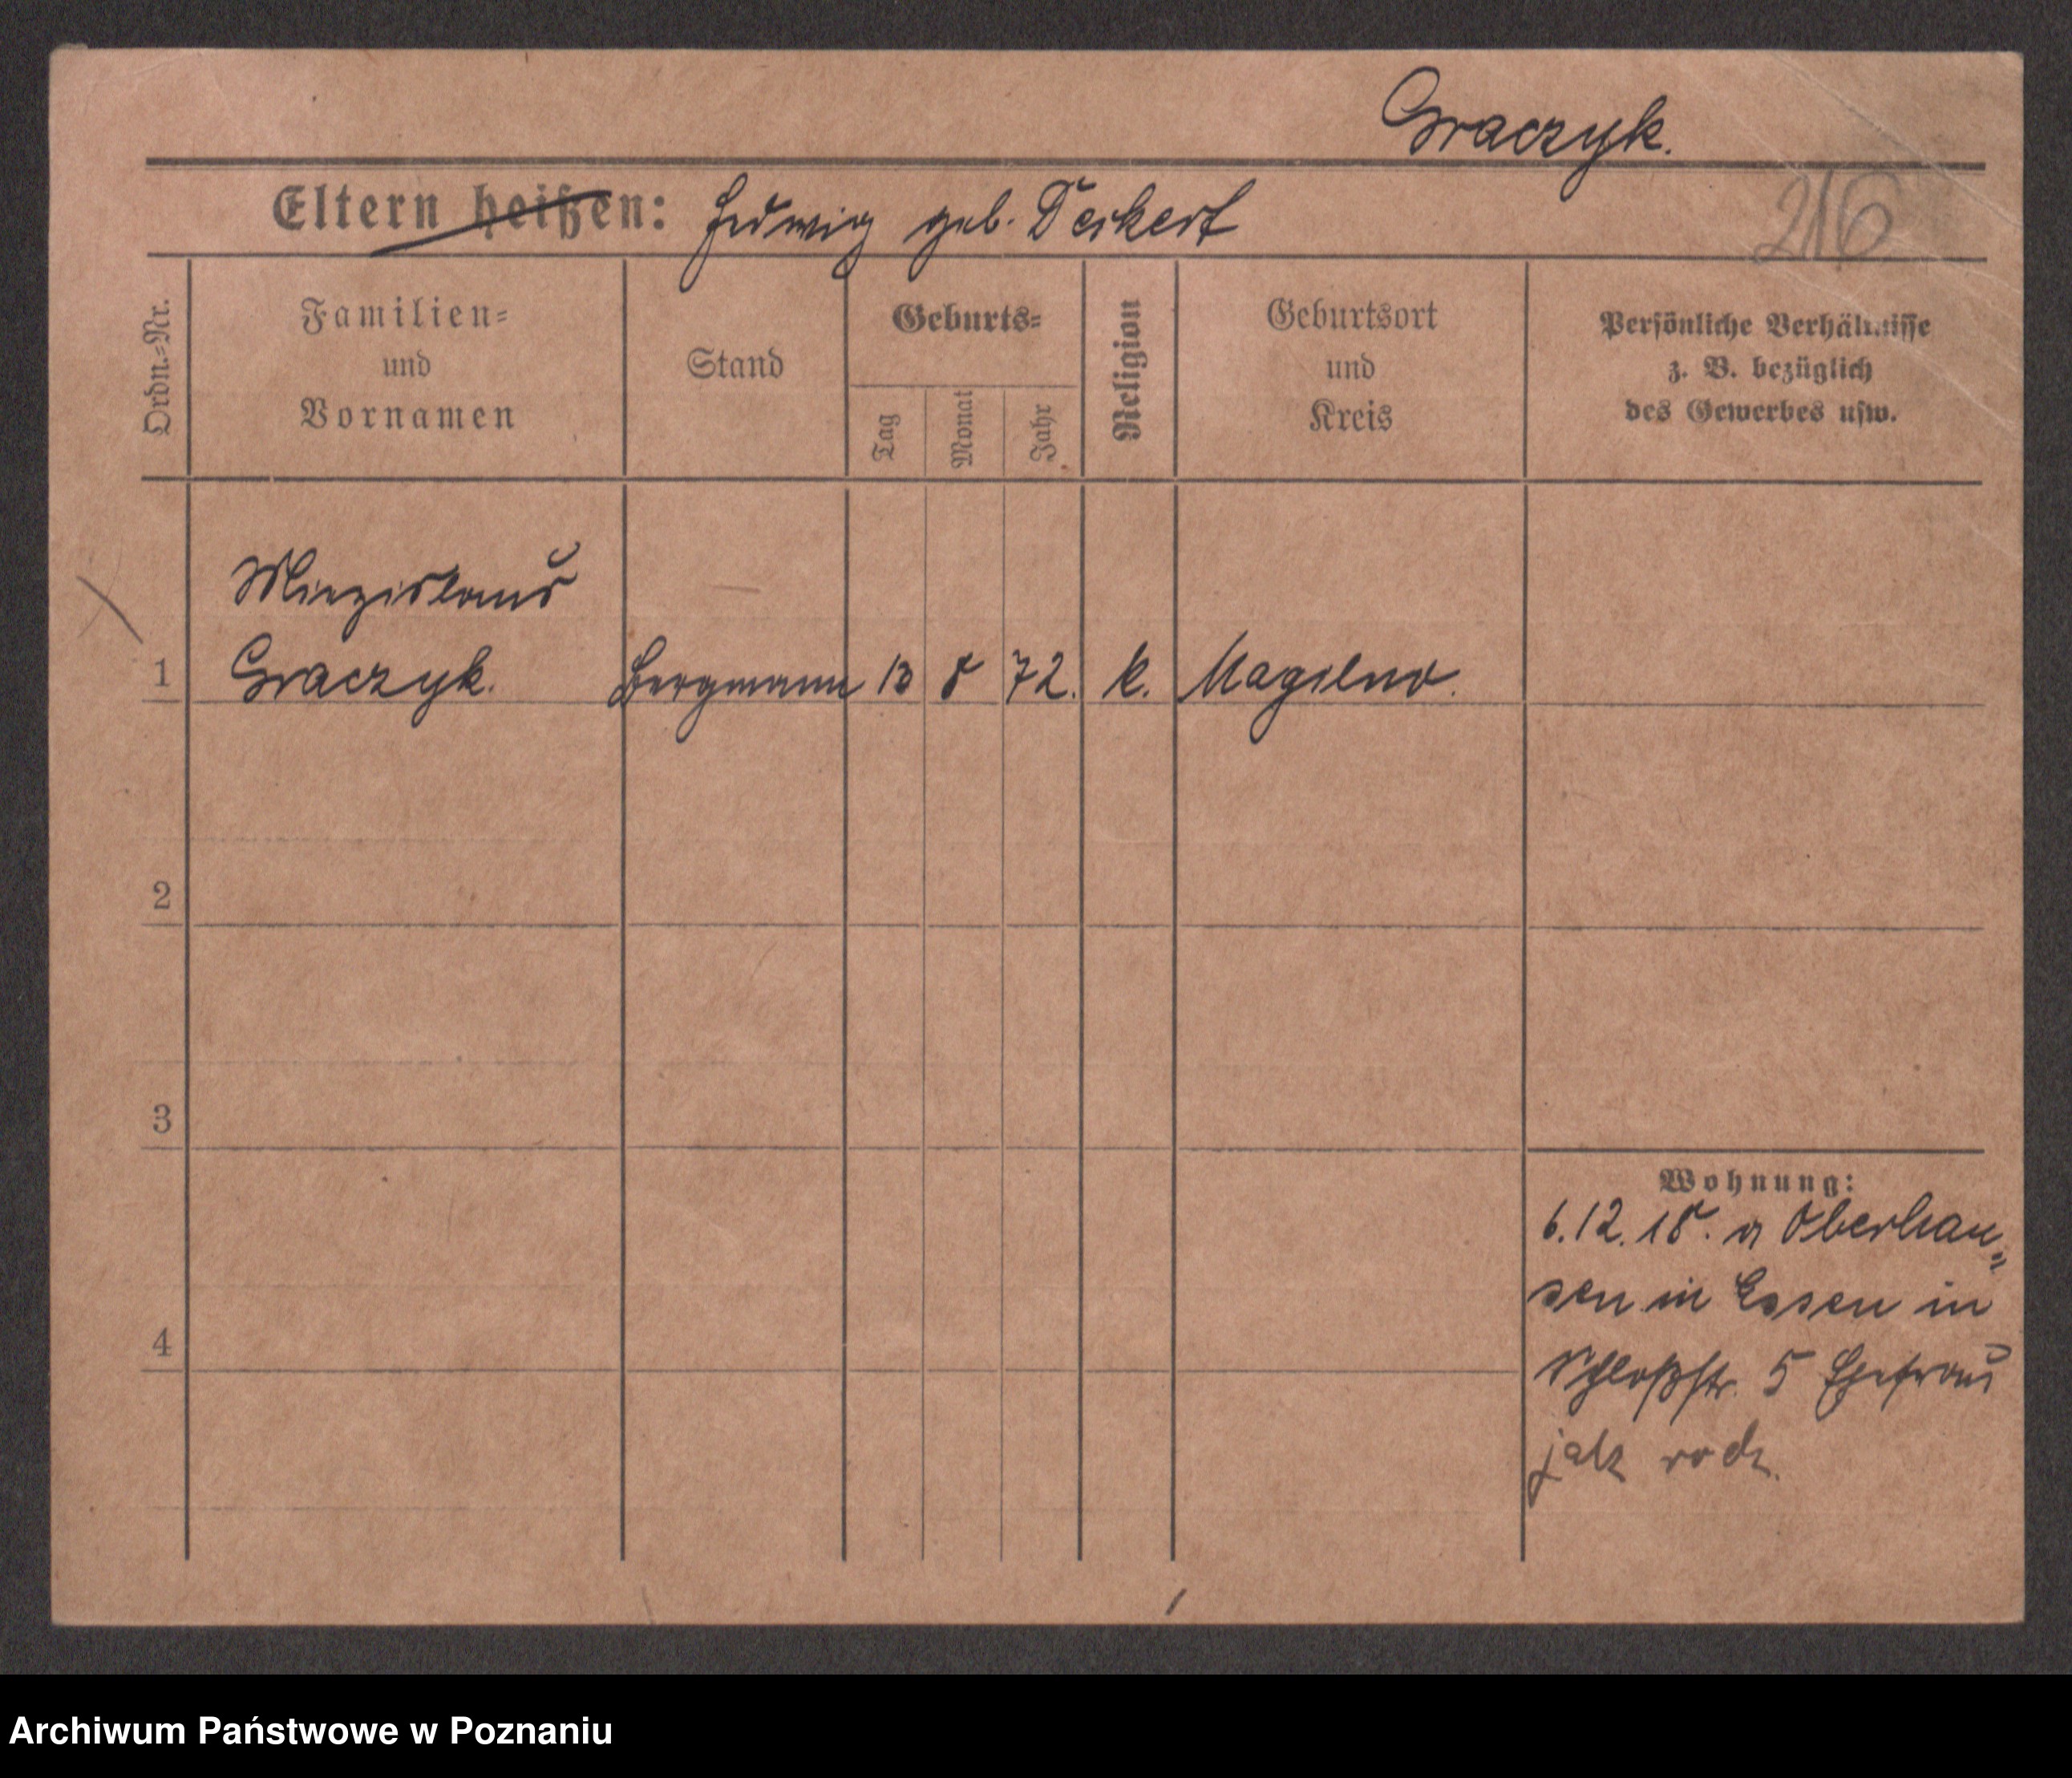 Graczyk.
Eltern heißen: Hedwig geb. Deikert
216
Ordn.=Nr.
Familien=
und
Vornamen
Stand
Geburts=
Tag
Monat
Jahr
Religion
Geburtsort
und
Kreis
Persönliche Verhältnisse
z. B. bezüglich
des Gewerbes usw.
Miezislaus
1 Graczyk. Bergmann 13 8 72. k. Magilno.
2
3
4
Wohnung:
6.12.18. a Oberhau=
sen in Essen in
Schloßstr. 5 Ehefrau
Archiwum Państwowe w Poznaniu